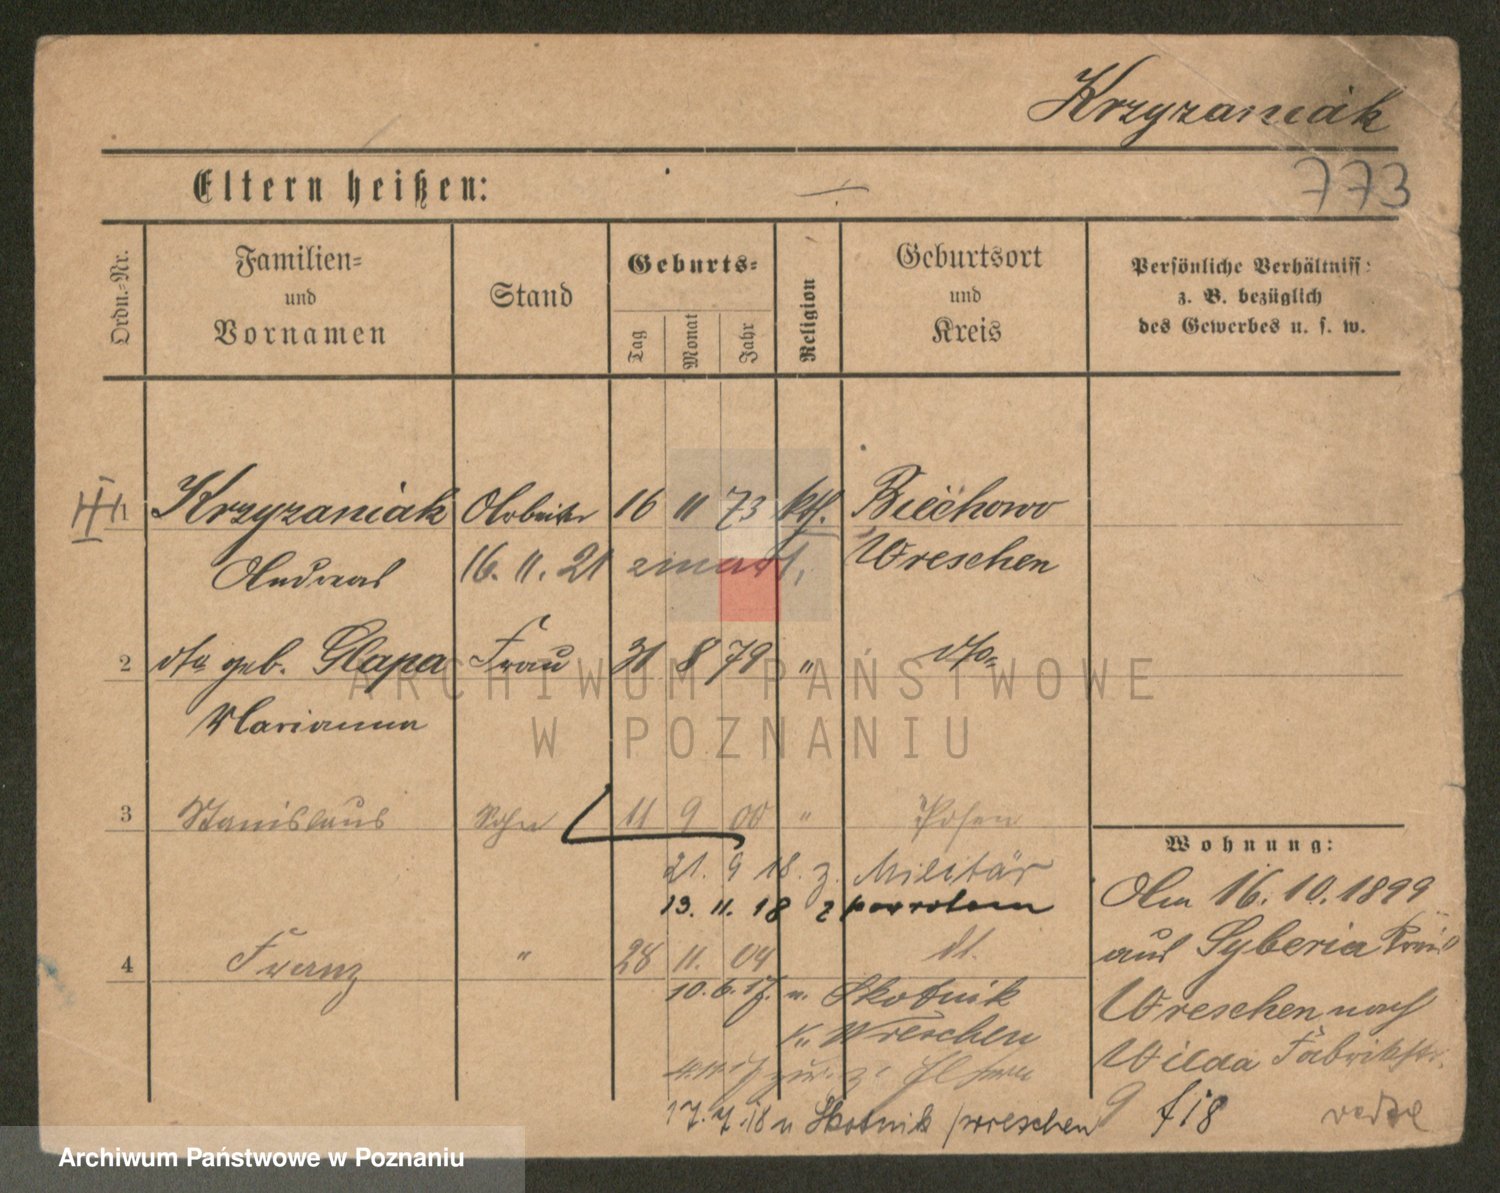 Krzyzaniak
773
Eltern heißen:
Ordn.-Nr.
Familien-
und
Vornamen
Stand
Geburts-
Tag
Monat
Jahr
Religion
Geburtsort
und
Kreis
Persönliche Verhältniss:
z. B. bezüglich
des Gewerbes u. s. w.
1 Krzyzaniak Arbeiter 16 11 73 kth. Biechowo
Andreas 16. 11. 21 zmarł, Wreschen
2 dto geb. Glapa Frau 31 8 79 " dto.
Marianna
3 Stanislaus Sohn 11 9 00 " Posen
21. 9 18. z. Militär
13. 11. 18 z powrotem
4 Franz " 28 11. 04 dt.
10. 6. 17. n. Skotnik
K. Wreschen
zur. z. Eltern
17. 7. 18 n Skotnik /Wreschen
Wohnung:
Am 16. 10. 1899
aus Syberia Kreis
Wreschen nach
Wilda Fabrikstr.
9 f 18
ARCHIWUM PAŃSTWOWE
W POZNANIU
Archiwum Państwowe w Poznaniu